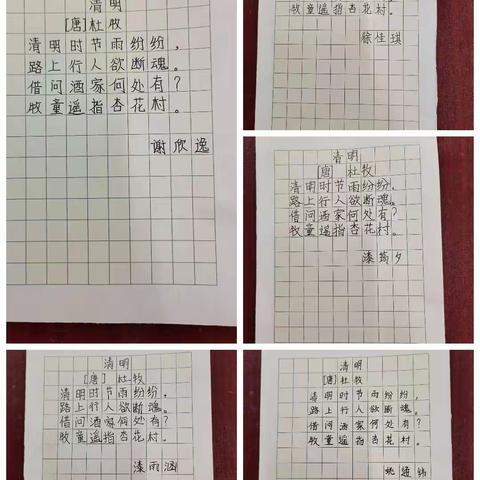 清明
[唐]杜牧
清明时节雨纷纷，
路上行人欲断魂。
借问酒家何处有？
牧童遥指杏花村。
谢欣逸
牧童遥指杏花村。
徐佳琪
清明
[唐] 杜牧
清明时节雨纷纷，
路上行人欲断魂。
借问酒家何处有？
牧童遥指杏花村。
漆筠夕
清明
[唐] 杜牧
清明时节雨纷纷，
路上行人欲断魂。
借问酒家何处有？
牧童遥指杏花村。
漆雨涵
清明
[唐]杜牧
清明时节雨纷纷，
路上行人欲断魂。
借问酒家何处有？
牧童遥指杏花村。